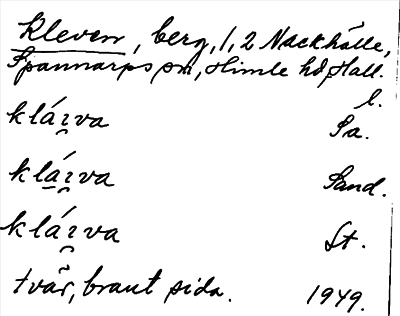 Kleven, berg, 1,2 Nackhälle,
Spannarps sn, Himle hd, Hall.
l.
kláı̯va Sa.
klá̱ı̯va Sand.
kláı̯va St.
tvär, brant sida. 1949.